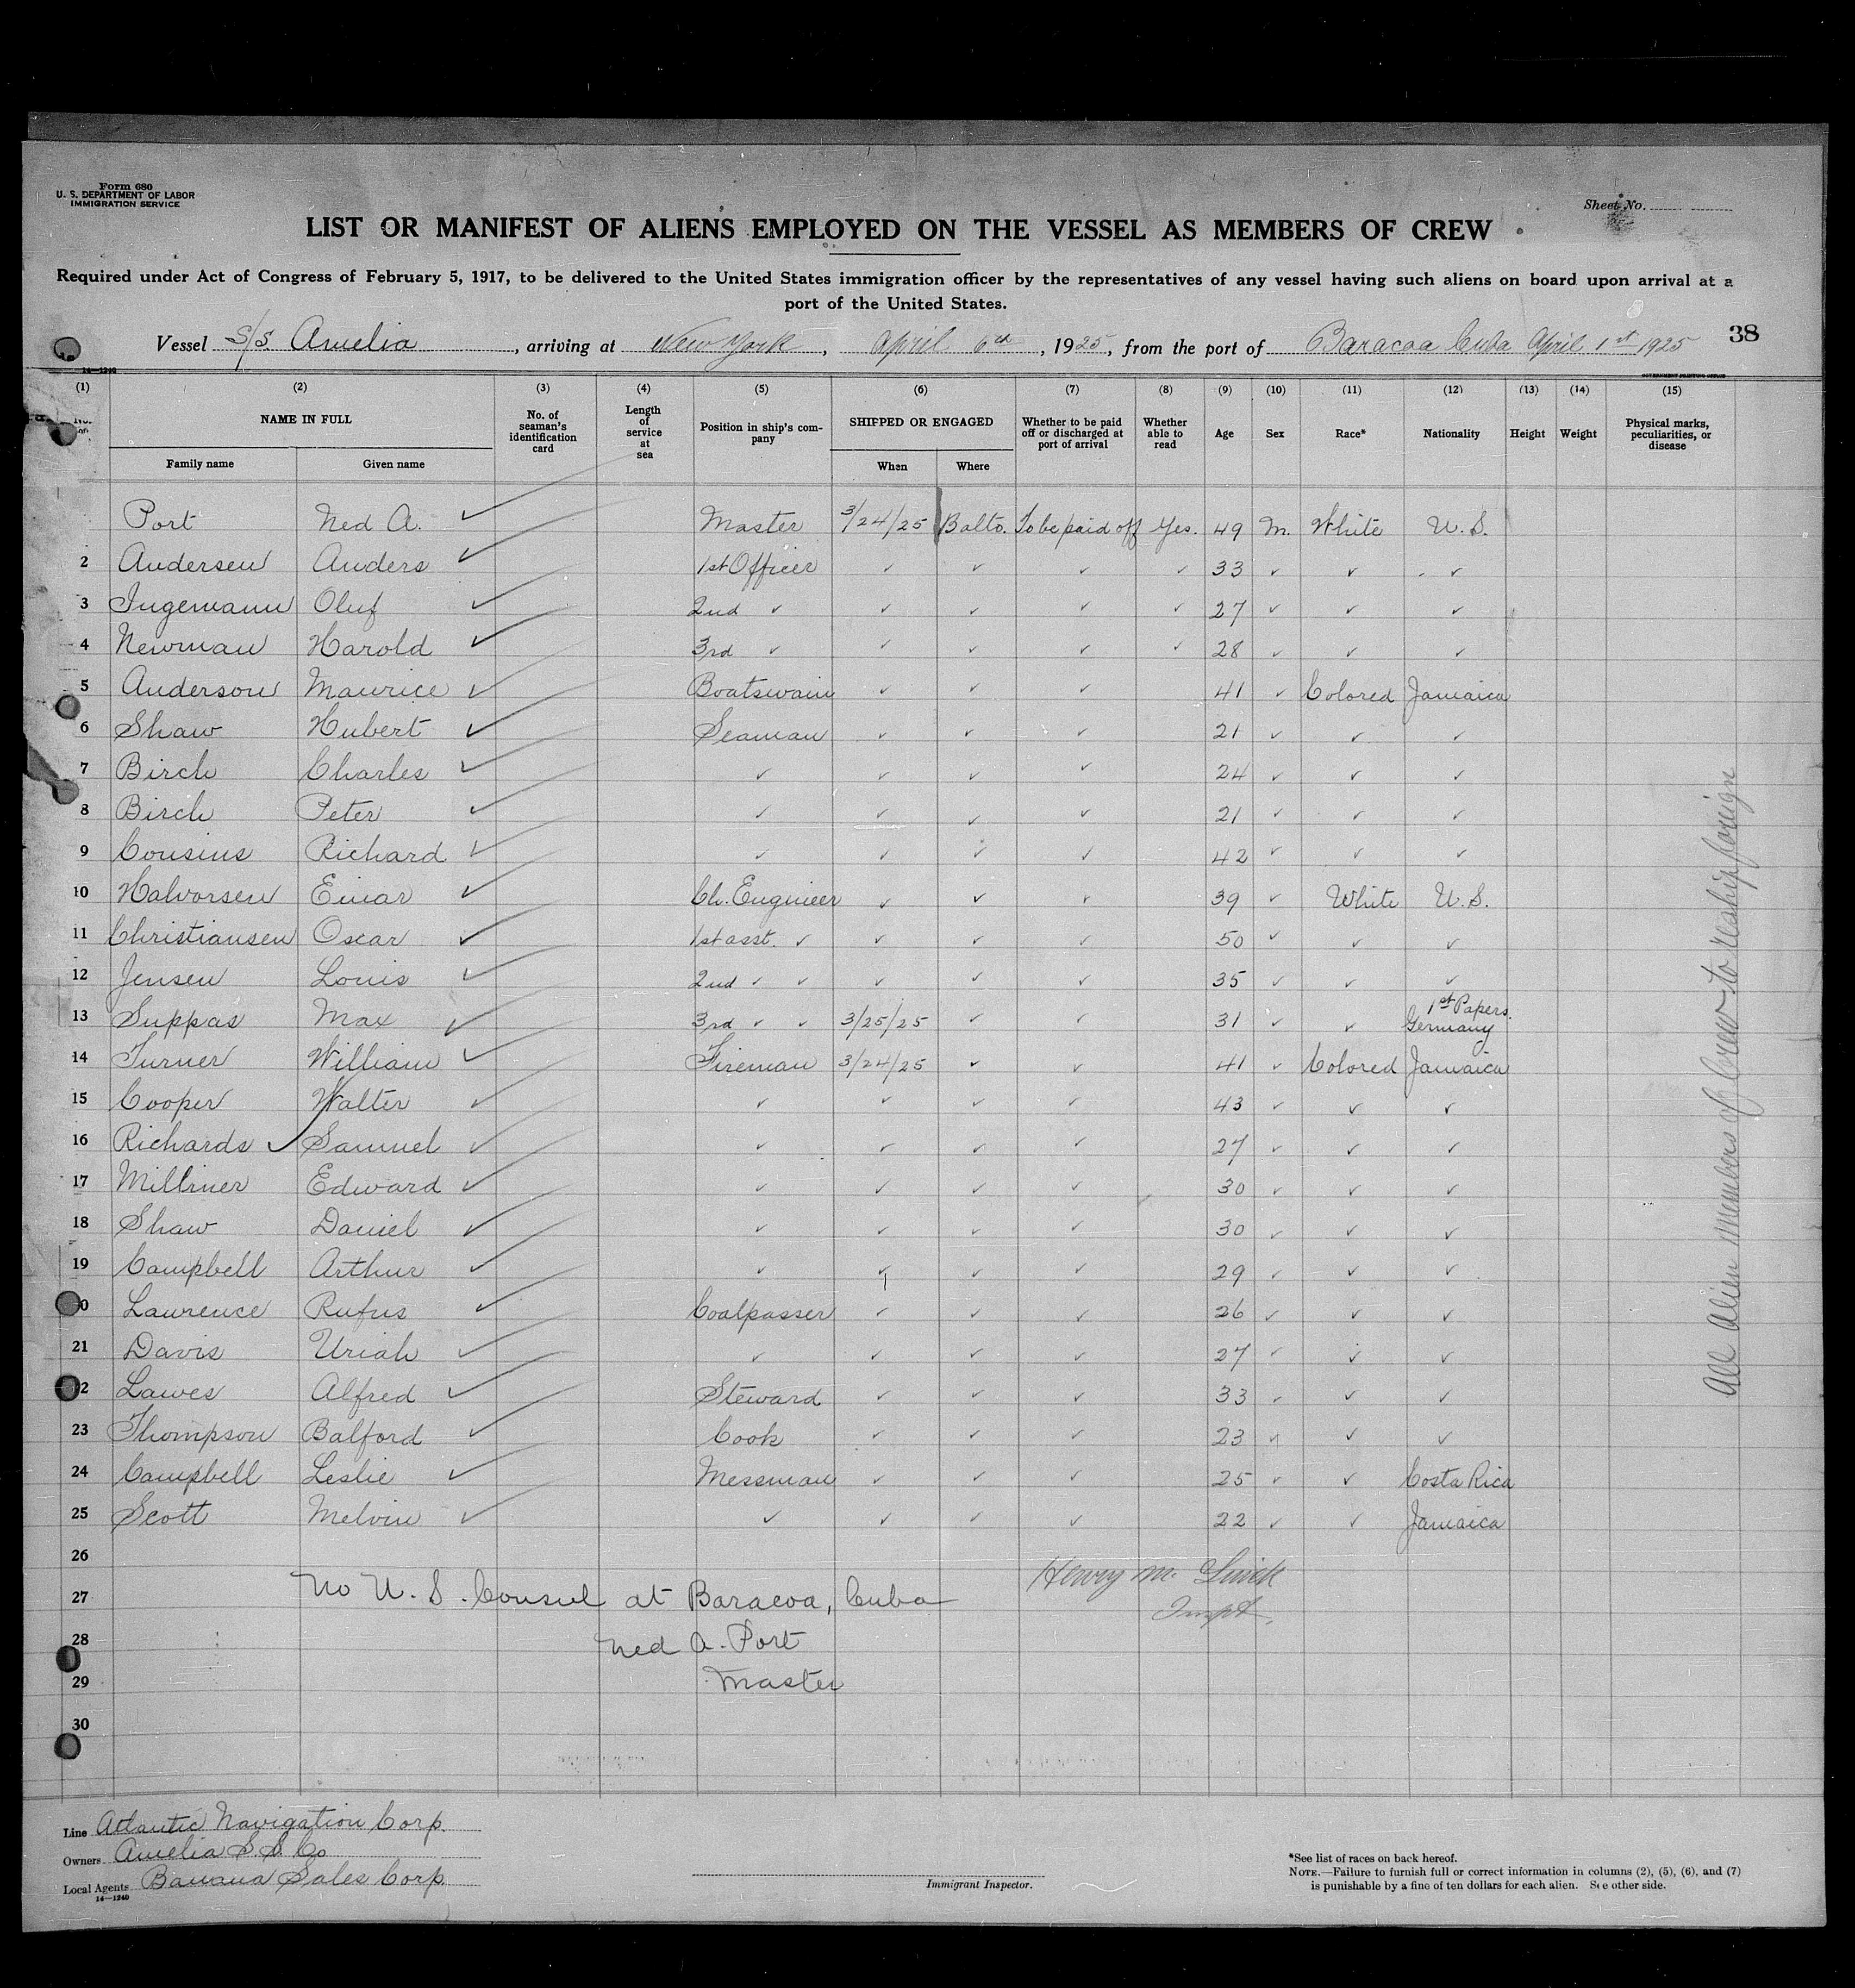 Form 680
U. S. DEPARTMENT OF LABOR
IMMIGRATION SERVICE
Sheet No.
LIST OR MANIFEST OF ALIENS EMPLOYED ON THE VESSEL AS MEMBERS OF CREW
Required under Act of Congress of February 5, 1917, to be delivered to the United States immigration officer by the representatives of any vessel having such aliens on board upon arrival at a
port of the United States.
Vessel S/S. Amelia, arriving at New York, April 6th, 1925, from the port of Baracoa Cuba April 1st 1925 38
14—1240 GOVERNMENT PRINTING OFFICE
(1) (2) (3) (4) (5) (6) (7) (8) (9) (10) (11) (12) (13) (14) (15)
No. NAME IN FULL No. of seaman's identification card Length of service at sea Position in ship's company SHIPPED OR ENGAGED Whether to be paid off or discharged at port of arrival Whether able to read Age Sex Race* Nationality Height Weight Physical marks, peculiarities, or disease
Family name Given name When Where
Port Ned A. ✓ Master 3/24/25 Balto. To be paid off Yes. 49 M. White U.S.
2 Andersen Anders ✓ 1st Officer ✓ ✓ ✓ ✓ 33 ✓ ✓ ✓
3 Ingemann Oluf ✓ 2nd ✓ ✓ ✓ ✓ ✓ 27 ✓ ✓ ✓
4 Newman Harold ✓ 3rd ✓ ✓ ✓ ✓ ✓ 28 ✓ ✓ ✓
5 Anderson Maurice ✓ Boatswain ✓ ✓ ✓ 41 ✓ Colored Jamaica
6 Shaw Hubert ✓ Seaman ✓ ✓ ✓ 21 ✓ ✓ ✓
7 Birch Charles ✓ ✓ ✓ ✓ ✓ 24 ✓ ✓ ✓
8 Birch Peter ✓ ✓ ✓ ✓ ✓ 21 ✓ ✓ ✓
9 Cousins Richard ✓ ✓ ✓ ✓ ✓ 42 ✓ ✓ ✓
10 Halvorsen Einar ✓ Ch. Engineer ✓ ✓ ✓ 39 ✓ White U.S.
11 Christiansen Oscar ✓ 1st asst. ✓ ✓ ✓ ✓ 50 ✓ ✓ ✓
12 Jensen Louis ✓ 2nd ✓ ✓ ✓ ✓ ✓ 35 ✓ ✓ ✓
13 Suppas Max ✓ 3rd ✓ ✓ 3/25/25 ✓ ✓ 31 ✓ ✓ 1st Papers. Germany
14 Turner William ✓ Fireman 3/24/25 ✓ ✓ 41 ✓ Colored Jamaica
15 Cooper Walter ✓ ✓ ✓ ✓ ✓ 43 ✓ ✓ ✓
16 Richards ✓ Samuel ✓ ✓ ✓ ✓ ✓ 27 ✓ ✓ ✓
17 Milliner Edward ✓ ✓ ✓ ✓ ✓ 30 ✓ ✓ ✓
18 Shaw Daniel ✓ ✓ ✓ ✓ ✓ 30 ✓ ✓ ✓
19 Campbell Arthur ✓ ✓ ✓ ✓ ✓ 29 ✓ ✓ ✓
0 Lawrence Rufus ✓ Coalpasser ✓ ✓ ✓ 26 ✓ ✓ ✓
21 Davis Uriah ✓ ✓ ✓ ✓ ✓ 27 ✓ ✓ ✓
2 Lawes Alfred ✓ Steward ✓ ✓ ✓ 33 ✓ ✓ ✓
23 Thompson Balford ✓ Cook ✓ ✓ ✓ 23 ✓ ✓ ✓
24 Campbell Leslie ✓ Messman ✓ ✓ ✓ 25 ✓ ✓ Costa Rica
25 Scott Melvin ✓ ✓ ✓ ✓ ✓ 22 ✓ ✓ Jamaica
All Alien Members of Crew to reship foreign
26 Henry M.
27 No U.S. Consul at Baracoa, Cuba
Inspt.
28 Ned A. Port
29 Master
30
Line Atlantic Navigation Corp.
Owners Amelia S.S. Co
Local Agents Banana Sales Corp.
14—1240
Immigrant Inspector.
*See list of races on back hereof.
NOTE.—Failure to furnish full or correct information in columns (2), (5), (6), and (7)
is punishable by a fine of ten dollars for each alien. See other side.